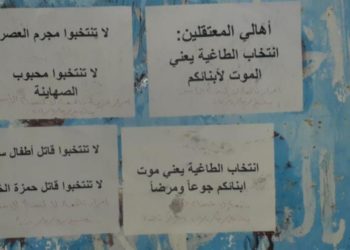 أهالي المعتقلين:
انتخاب الطاغية يعني
الموت لأبنائكم
لا تنتخبوا مجرم العصر
لا تنتخبوا محبوب
الصهاينة
انتخاب الطاغية يعني موت
ابنائكم جوعاً ومرضاً
لا تنتخبوا قاتل أطفال
لا تنتخبوا قاتل حمزة